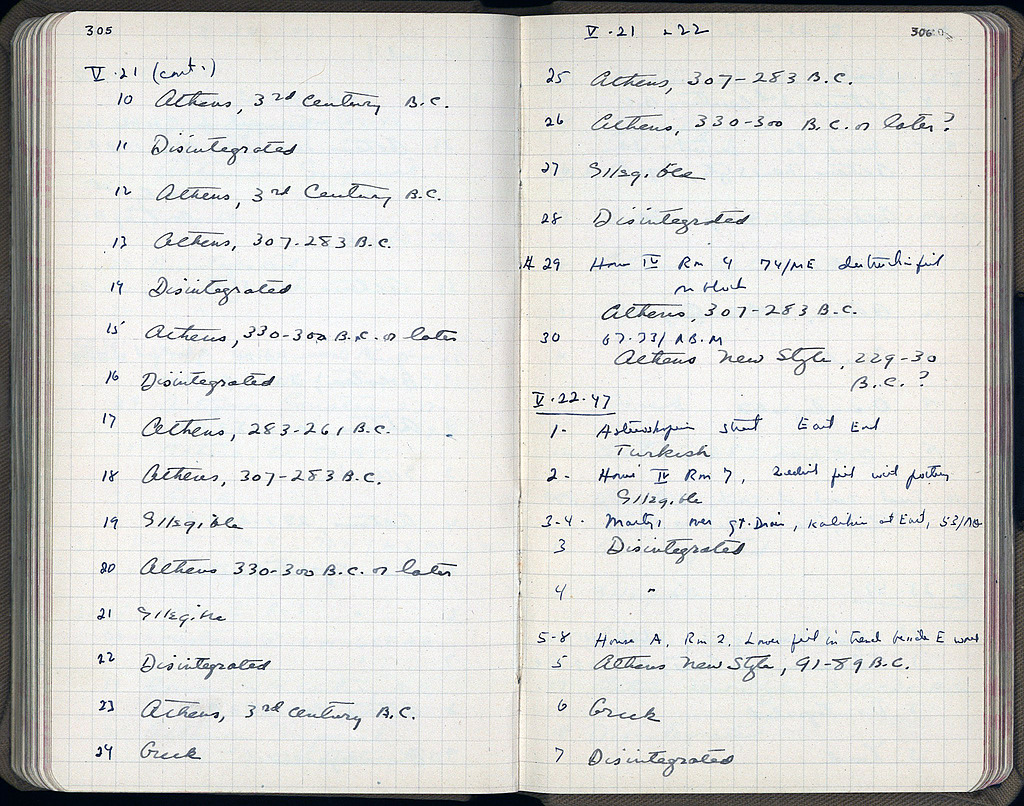 305
V.21 (cont.)
10 Athens, 3rd Century B.C.
11 Disintegrated
12 Athens, 3rd Century B.C.
13 Athens, 307-283 B.C.
14 Disintegrated
15 Athens, 330-300 B.C. or later
16 Disintegrated
17 Athens, 283-261 B.C.
18 Athens, 307-283 B.C.
19 Illegible
20 Athens 330-300 B.C. or later
21 Illegible
22 Disintegrated
23 Athens, 3rd Century B.C.
24 Greek
V.21-22 306
25 Athens, 307-283 B.C.
26 Athens, 330-300 B.C. or later?
27 Illegible
28 Disintegrated
29 House IV Rm 4 74/ΜΕ
Athens, 307-283 B.C.
30
Athens New Style, 229-30
B.C.?
V.22.47
1- street East End
Turkish
2- House IV Rm 7, fill with pottery
Illegible
3-4- over gt. Drain, at East, 53/
3 Disintegrated
4 "
5-8 House A. Rm 2. Lower fill in trench beside E wall
5 Athens New Style, 91-89 B.C.
6 Greek
7 Disintegrated